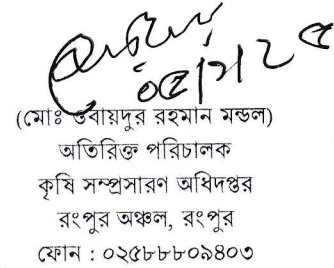 (মোঃ ওবায়দুর রহমান মন্ডল)
অতিরিক্ত পরিচালক
কৃষি সম্প্রসারণ অধিদপ্তর
রংপুর অঞ্চল, রংপুর
ফোন : ০২৫৮৮৮০৯৪০৩